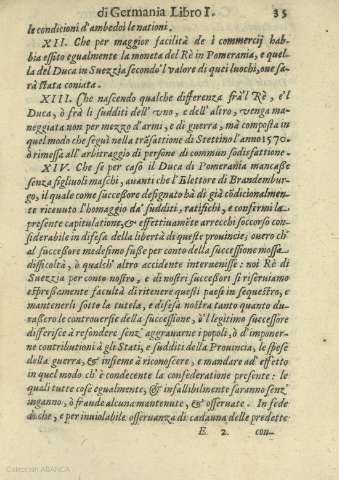 di Germania Libro I. 35
le condicioni d'ambedoi le nationi.
XII. Che per maggior facilità de i commercij hab-
bia essito egualmente la moneta del Rè in Pomerania, e quel-
la del Duca in Suezzia secondo'l valore di quei luochi, oue sa-
rà stata coniata.
XIII. Che nascendo qualche differenza frà'l Rè, e'l
Duca, ò frà li sudditi dell'vno, e dell'altro, venga ma-
neggiata non per mezzo d'armi, e di guerra, mà composta in
quel modo che seguì nella trãsattione di Stettino l'anno 1570.
ò rimessa all'arbitraggio di persone di commun sodisfattione.
XIV. Che se per caso il Duca di Pomerania mancasse
senza figliuoli maschi, auanti che l'Elettore di Brandembur-
go, il quale come successore designato hà di già cõdicional men-
te riceuuto l'homaggio da' sudditi, ratifichi, e confermi la
presente capitulatione, & effettiuamẽte arrecchi soccorso con-
siderabile in difesa della libertà di queste prouincie; ouero ch'
al successore medesimo fusse per conto della successione mossa
difficoltà, ò qualch'altro accidente interuenisse: noi Rè di
Suezzia per conto nostro, e di nostri successori si reseruiamo
espressamente facultà di ritenere questi paesi in sequestro, e
mantenerli sotto la tutela, e difesa nostra tanto quanto du-
rassero le controuersie della successione, ò'l legitimo successore
differisce à refondere senz'aggrauarne i popoli, ò d'imponer-
ne contributioni à gli Stati, e sudditi della Prouincia, le spese
della guerra, & insieme à riconoscere, e mandare ad effetto
in quel modo ch'è condecente la confederatione presente: le
quali tutte cose egualmente, & infallibilmente saranno senz'
inganno, ò fraude alcuna mantenute, & osseruate. In fede
di che, e per inuiolabile osseruanza di cadauna delle predette
E 2. con-
Colección ABANCA